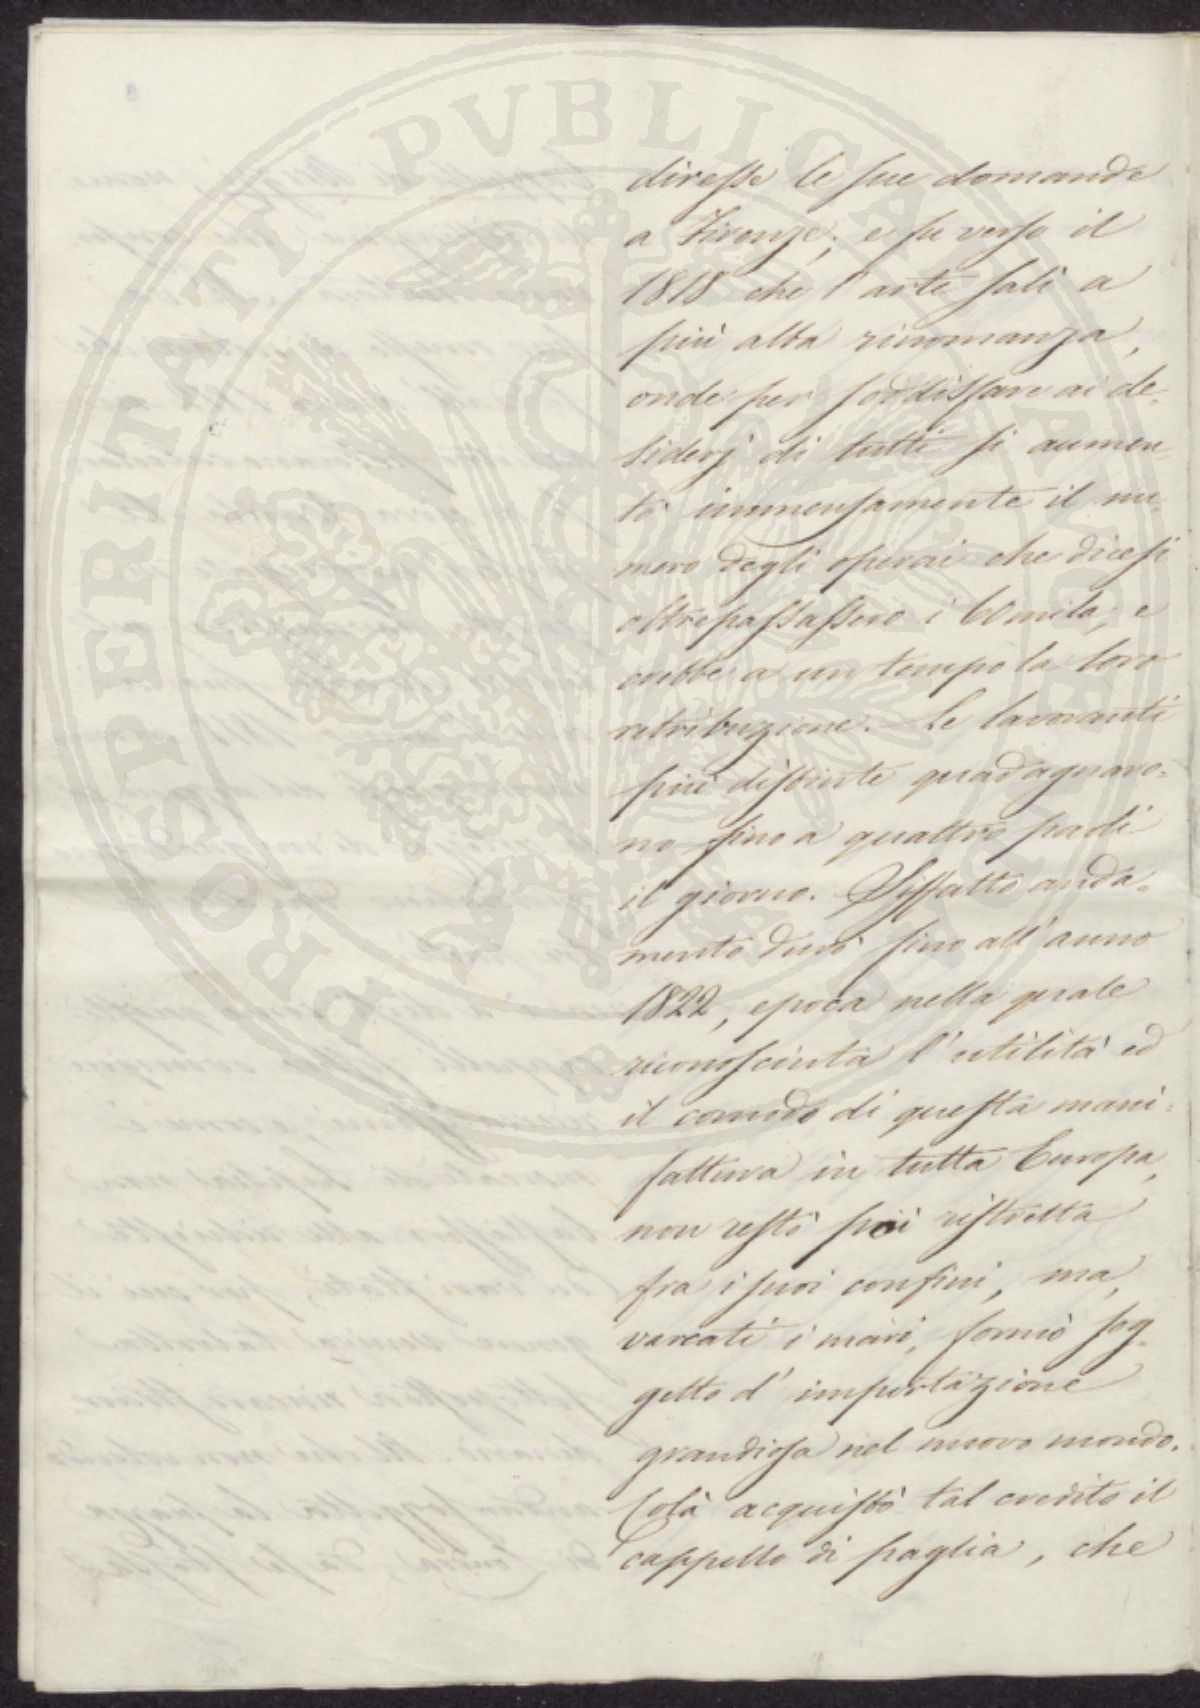 PROSPERITATI PVBLICAE AVGENDAE
diresse le sue domande
a Firenze; e fu verso il
1818 che l'arte salì a
più alta rinomanza,
onde per soddisfare ai de-
siderj di tutti si aumen-
tò immensamente il nu-
mero degli operai che dicesi
oltrepassassero i 60mila, e
crebbe a un tempo la loro
retribuzione. Le lavoranti
più distinte guadagnaro-
no fino a quattro paoli
il giorno. Siffatto anda-
mento durò fino all'anno
1822, epoca nella quale
riconosciuta l'utilità ed
il comodo di questa mani-
fattura in tutta Europa,
non restò più ristretta
fra i suoi confini, ma,
varcati i mari, formò sog-
getto d'importazione
grandiosa nel nuovo mondo.
Colà acquistò tal credito il
cappello di paglia, che